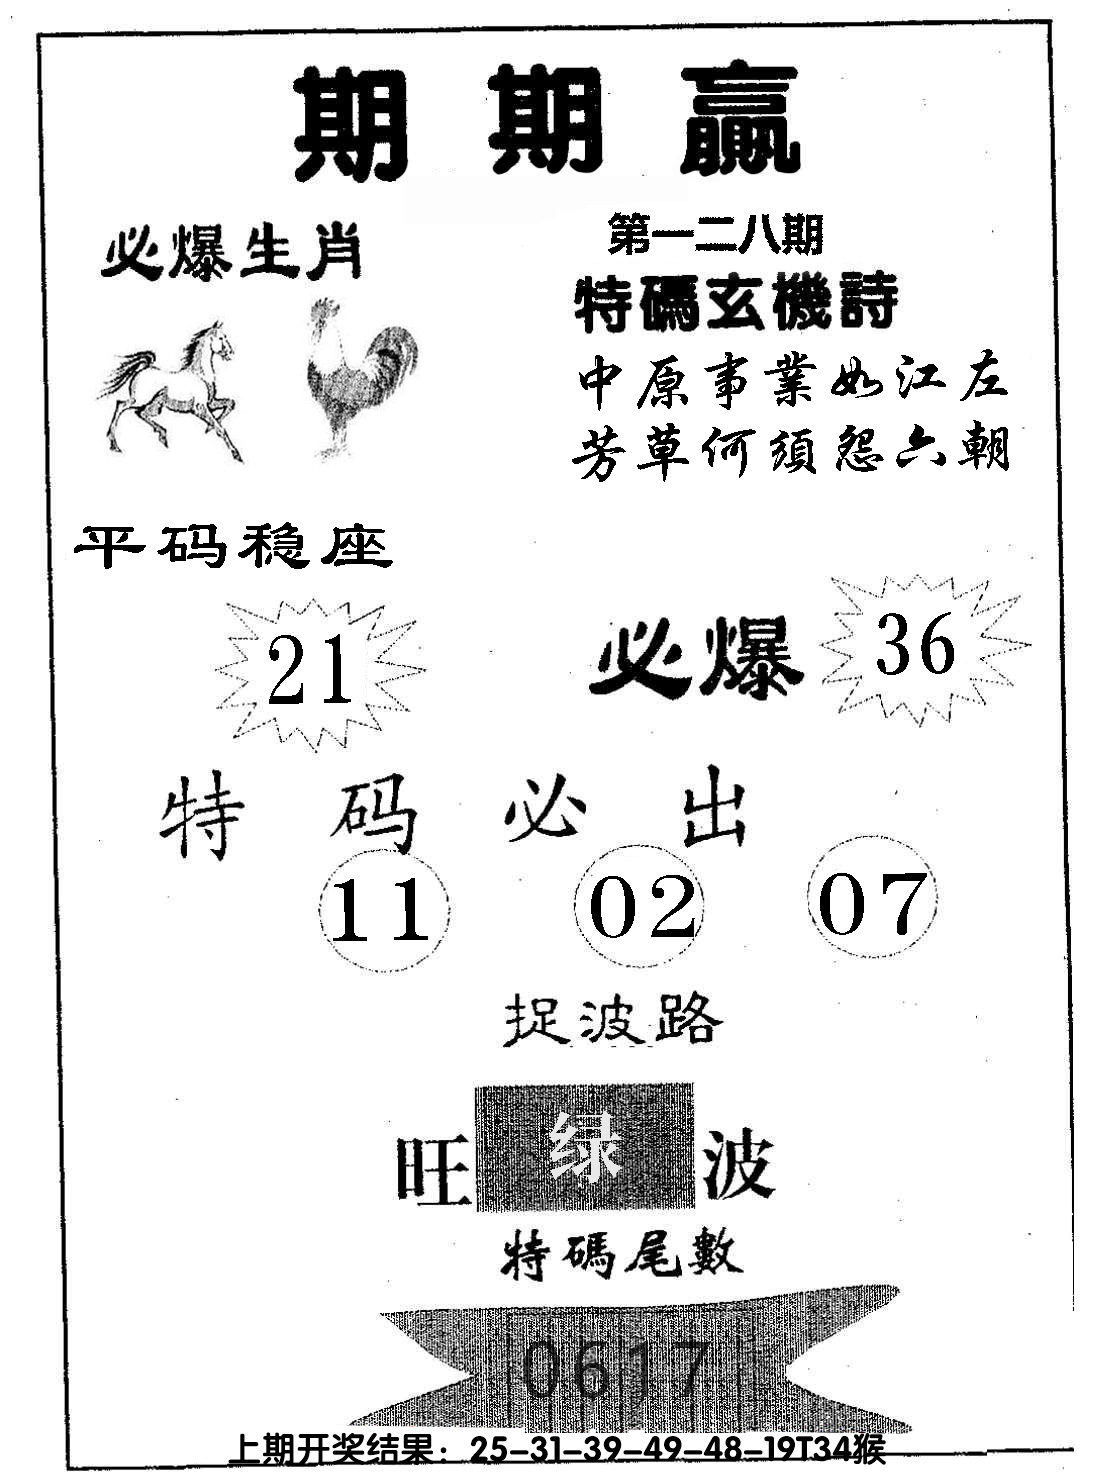 期期赢
必爆生肖
第一二八期
特碼玄機詩
中原事業如江左
芳草何須怨六朝
平码稳座
21
必爆
36
特码必出
11 02 07
捉波路
旺绿波
特碼尾數
0617
上期开奖结果：25-31-39-49-48-19T34猴